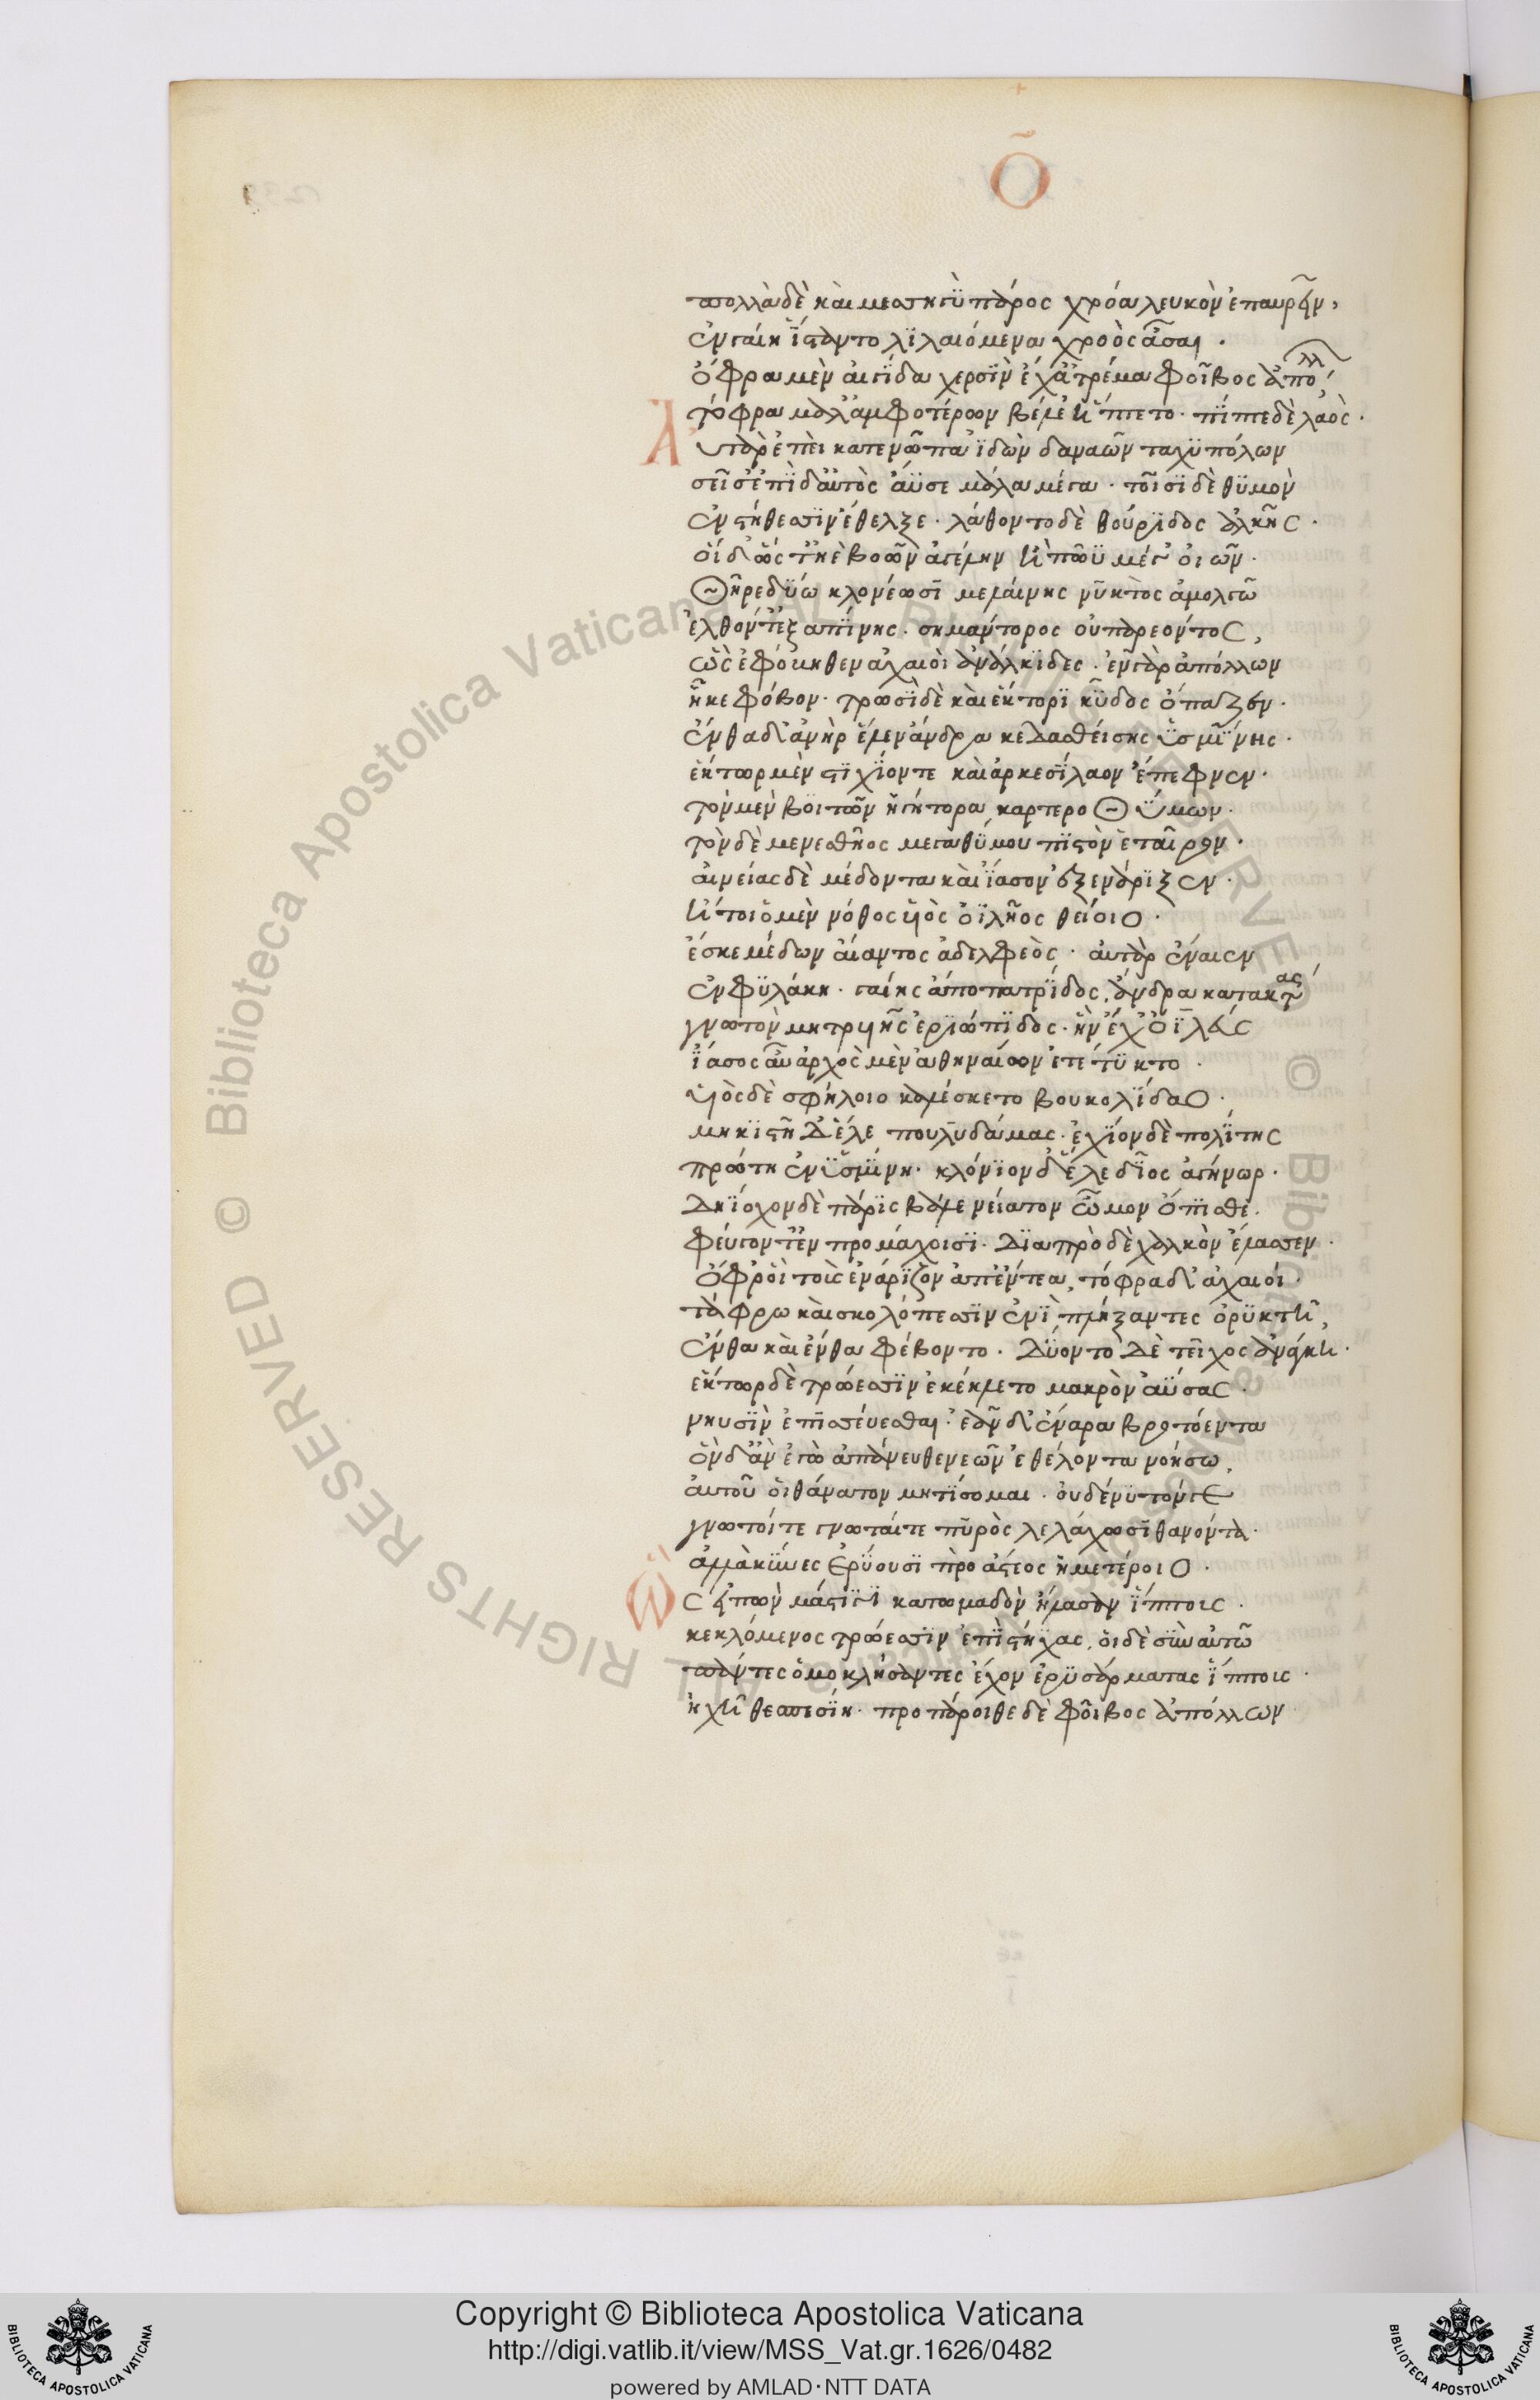 Ο
πολλὰ δὲ καὶ μεσσηγὺ πάρος χρόα λευκὸν ἐπαυρεῖν,
ἐν γαίη ἵσταντο λιλαιόμενα χροὸς ἆσαι.
ὄφρα μὲν αἰγίδα χερσὶν ἔχ' ἀτρέμα φοῖβος ἀπόλλ
τόφρα μάλ' ἀμφοτέρων βέλε' ἥπτετο· πίπτε δὲ λαός·
Αὐτὰρ ἐπεὶ κατενῶπα ἰδὼν δαναῶν ταχυπόλων
σεῖσ' ἐπὶ δ' αὐτὸς ἄυσε μάλα μέγα· τοῖσι δὲ θυμὸν
ἐν στήθεσσιν ἔθελξε· λάθοντο δὲ θούριδος ἀλκῆς·
οἱ δ' ὥς τ' ἠὲ βοῶν ἀγέλην ἢ πῶυ μέγ' οἰῶν·
Θῆρε δύω κλονέωσι μελαίνης νυκτὸς ἀμολγῶ
ἐλθόντ' ἐξαπίνης· σημάντορος οὐ παρεόντος,
ὣς ἐφόβηθεν ἀχαιοὶ ἀνάλκιδες· ἐν γὰρ ἀπόλλων
ἧκε φόβον· τρωσὶ δὲ καὶ ἕκτορι κῦδος ὄπαζεν·
ἔνθα δ' ἀνὴρ ἕλεν ἄνδρα κεδασθείσης ὑσμίνης·
ἕκτωρ μὲν στιχίον τε καὶ ἀρκεσίλαον ἔπεφνεν·
τὸν μὲν βοιτῶν ἡγήτορα καρτεροθύμων·
τὸν δὲ μενεσθῆος μεγαθύμου πιστὸν ἑταῖρον·
αἰνείας δὲ μέδοντα καὶ ἴασον ἐξενάριξεν·
ἤτοι ὁ μὲν νόθος υἱὸς ὀιλῆος θείοιο·
ἔσκε μέδων αἴαντος ἀδελφεὸς· αὐτὰρ ἔναιεν
ἐν φυλάκη· γαίης ἄπο πατρίδος, ἄνδρα κατακτάς
γνωτὸν μητρυιῆς ἐριώπιδος· ἣν ἔχ' ὀϊλεύς
ἴασος αὖ ἀρχὸς μὲν ἀθηναίων ἐτέτυκτο·
υἱὸς δὲ σφήλοιο καλέσκετο βουκολίδαο·
μηκιστῆ δ' ἕλε πουλυδάμας· ἐχίον δὲ πολίτης
πρώτη ἐν ὑσμίνη· κλόνιον δ' ἕλε δῖος ἀγήνωρ·
Δηίοχον δὲ πάρις βάλε νείατον ὦμον ὄπισθε·
φεύγοντ' ἐν προμάχοισι· διαπρὸ δὲ χαλκὸν ἔλασσεν·
ὄφρ' οἱ τοὺς ἐνάριζον ἀπ' ἔντεα, τόφρα δ' ἀχαιοί·
τάφρω καὶ σκολόπεσσιν ἐνὶ πλήξαντες ὀρυκτῆ,
ἔνθα καὶ ἔνθα φέβοντο· δύοντο δὲ τεῖχος ἀνάγκη·
ἕκτωρ δὲ τρώεσσιν ἐκέκλετο μακρὸν ἀύσας·
νηυσὶν ἐπισσεύεσθαι· ἐᾶν δ' ἔναρα βροτόεντα
ὃν δ' ἂν ἐγὼ ἀπάνευθε νεῶν ἐθέλοντα νοήσω,
αὐτοῦ οἱ θάνατον μητίσομαι· οὐδέ νυ τόν γε
γνωτοί τε γνωταί τε πυρὸς λελάχωσι θανόντα·
ἀλλὰ κύνες ἐρύουσι πρὸ ἄστεος ἡμετέροιο·
Ὣς εἰπὼν μάστιγι κατωμαδὸν ἤλασεν ἵππους·
κεκλόμενος τρώεσσιν ἐπὶ στίχας, οἱ δὲ σὺν αὐτῶ
πάντες ὁμοκλήσαντες ἔχον ἐρυσάρματας ἵππους·
ἠχῆ θεσπεσίη· προπάροιθε δὲ φοῖβος ἀπόλλων
Copyright © Biblioteca Apostolica Vaticana
http://digi.vatlib.it/view/MSS_Vat.gr.1626/0482
powered by AMLAD·NTT DATA